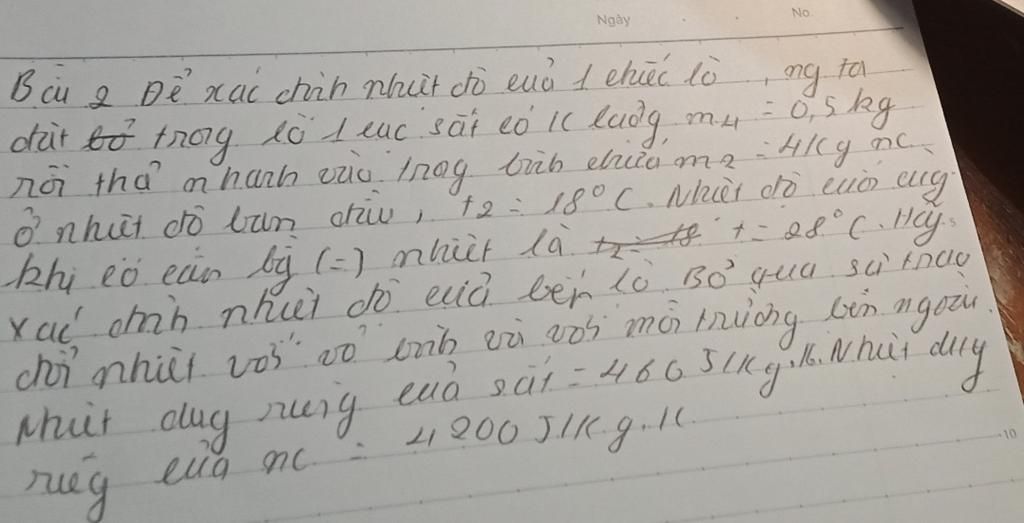 Ngày No.
Bài 2 Để xác định nhiệt độ của 1 chiếc lò, ng ta
đặt trong lò 1 cục sắt có K lượng m1 = 0,5kg
rồi thả nhanh vào trog bình chứa m2 = 4Kg nc
ở nhiệt độ ban đầu, t2 = 18°C. Nhiệt độ cuối cùg
khi có cân bg (=) nhiệt là t2 = 18 t = 28°C. Hãy
xác định nhiệt độ của bếp lò. Bỏ qua sự trao
đổi nhiệt với vỏ bình và với môi trường bên ngoài.
Nhiệt dug riêng của sắt = 460 J/Kg.K. Nhiệt dug
riêg của nc = 4200 J/Kg.K
10